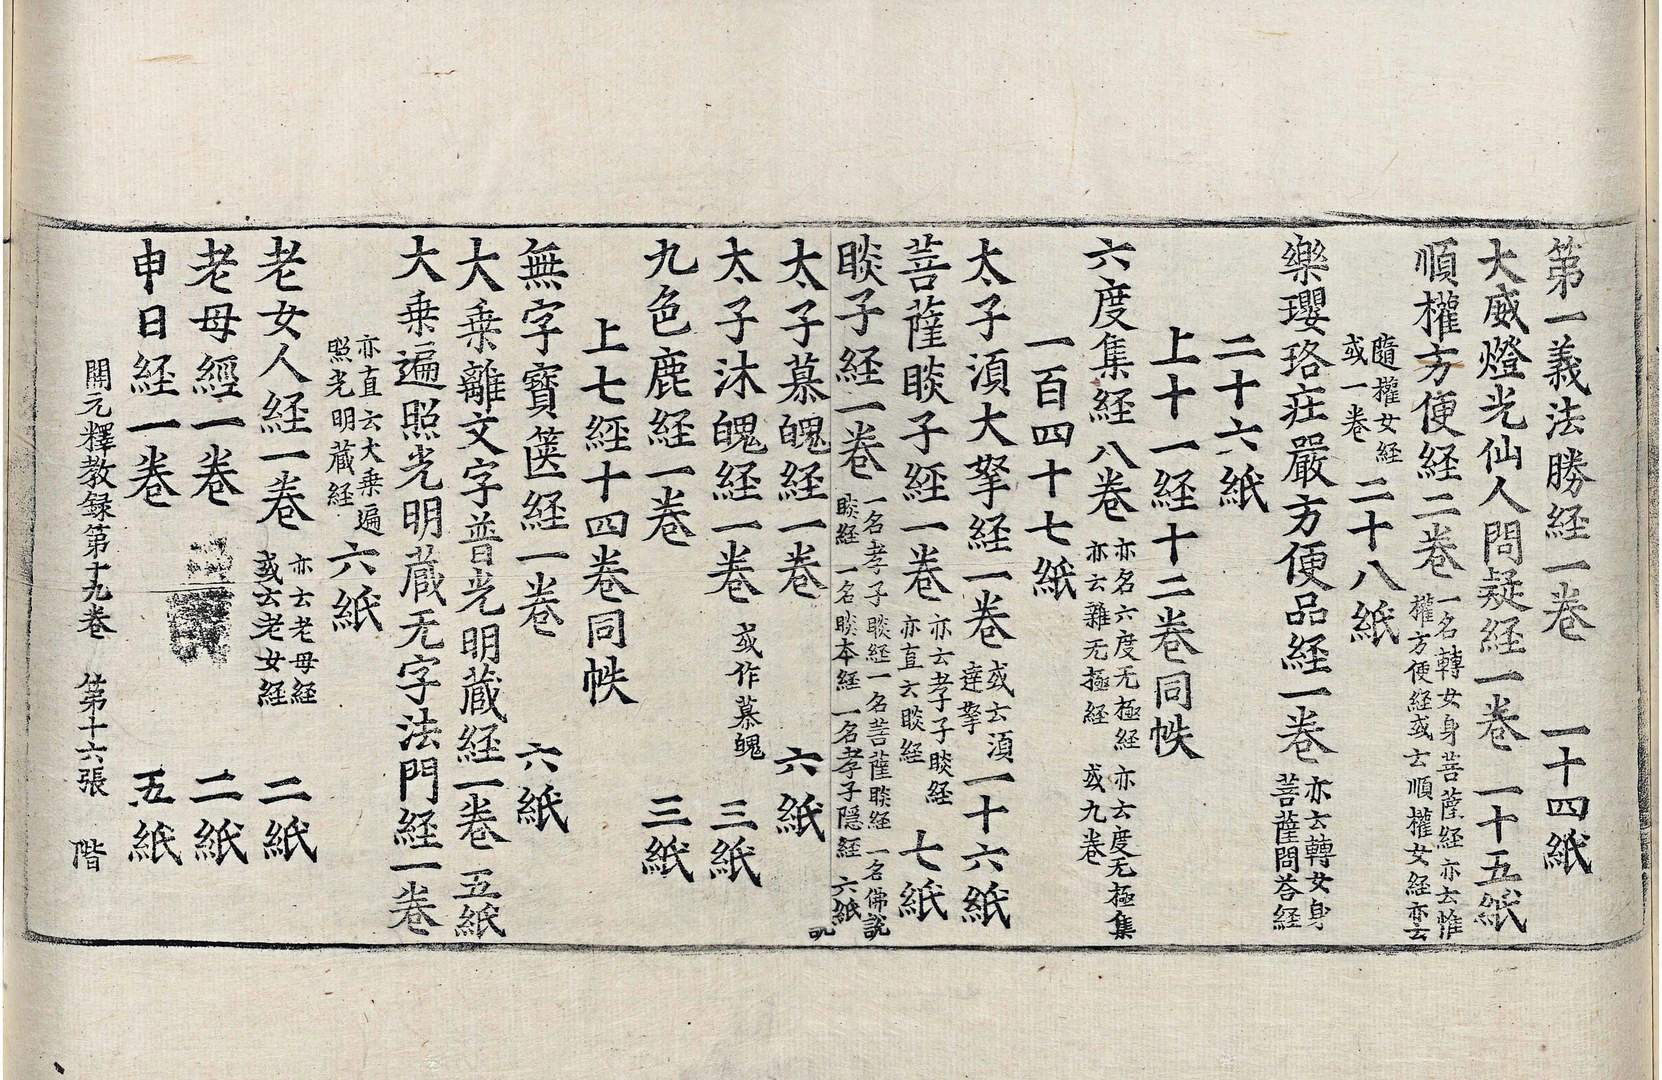 第一義法勝経一巻　一十四紙
大威燈光仙人問疑経一巻　一十五紙
順權方便経二巻　一名轉女身菩薩経亦云惟
權方便経或云順權女経亦云
隨權女経
或一巻　二十八紙
樂瓔珞荘嚴方便品経一巻　亦云轉女身
菩薩問荅経
二十六紙
上十一経十二巻同帙
六度集経八巻　亦名六度无極経　亦云度无極集
亦云雜无極経　或九巻
一百四十七紙
太子湏大拏経一巻　或云湏
達拏　一十六紙
菩薩睒子経一巻　亦云孝子睒経
亦直云睒経　七紙
睒子経一巻　一名孝子睒経一名菩薩睒経　一名佛說
睒経　一名睒本経　一名孝子隱経　六紙
太子慕魄経一巻　六紙
太子沐魄経一巻　或作慕魄　三紙
九色鹿経一巻　三紙
上七経十四巻同帙
無字寶篋経一巻　六紙
大乗離文字普光明蔵経一巻　五紙
大乗遍照光明蔵无字法門経一巻
亦直云大乗遍
照光明蔵経　六紙
老女人経一巻　亦云老母経
或云老女経　二紙
老母經一巻　二紙
申日経一巻　五紙
開元釋教録第十九巻　第十六張　階